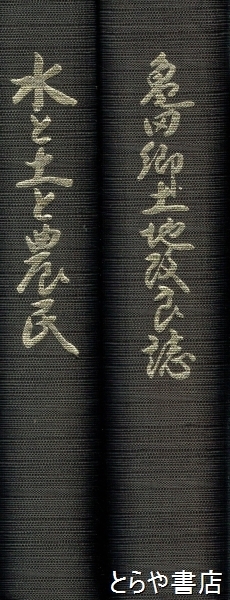 亀田郷土地改良誌
水と土と農民
とらや書店